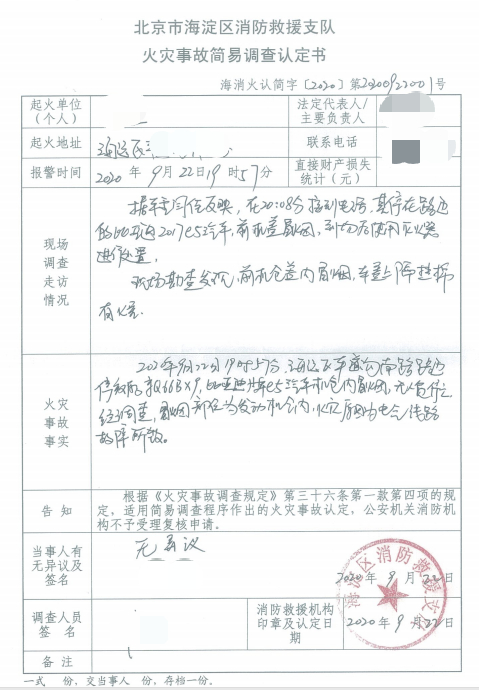 北京市海淀区消防救援支队
火灾事故简易调查认定书
海消火认简字〔2020〕第20200922001号
起火单位
(个人)
法定代表人/
主要负责人
起火地址
海淀区
联系电话
报警时间
2020年9月22日19时57分
直接财产损失
统计(元)
现场
调查
走访
情况
据车主周任反映，在20:08分接到电话，其停在路边
的比亚迪2017e5汽车，前机盖冒烟，到场后使用灭火器
进行处置。
现场勘查发现，前机仓盖内冒烟，车
有火
火灾
事故
事实
2020年9月22日19时57分，海淀区
停放的京Q66BX9，比亚迪牌e5汽车机仓内冒烟，无人员伤亡
经调查，冒烟部位为发动机仓内，火灾原因为电气线路
故障所致。
告 知
根据《火灾事故调查规定》第三十六条第一款第四项的规
定，适用简易调查程序作出的火灾事故认定，公安机关消防机
构不予受理复核申请。
当事人有
无异议及
签名
无异议
2020年9月22日
调查人员
签 名
消防救援机构
印章及认定日
期
2020年9月22日
海淀区消防救援支
备 注
一式 份，交当事人 份，存档一份。